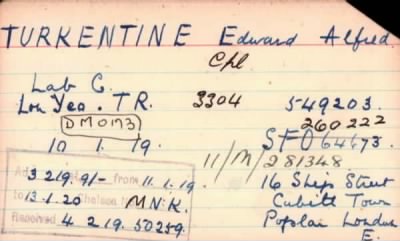 TURKENTINE Edward Alfred.
Cpl
Lab C.
Lon Yeo. T R. 3304 549203.
DM0173 260222
10 1 19. SFO 64473
11/M/281348
3219.91/- from 11.1.19.
to 13.1.20 Chelsea M.N.K.
Received 4 2 19. 50259.
16 Ship Street
Cubitt Town
Poplar London
E.